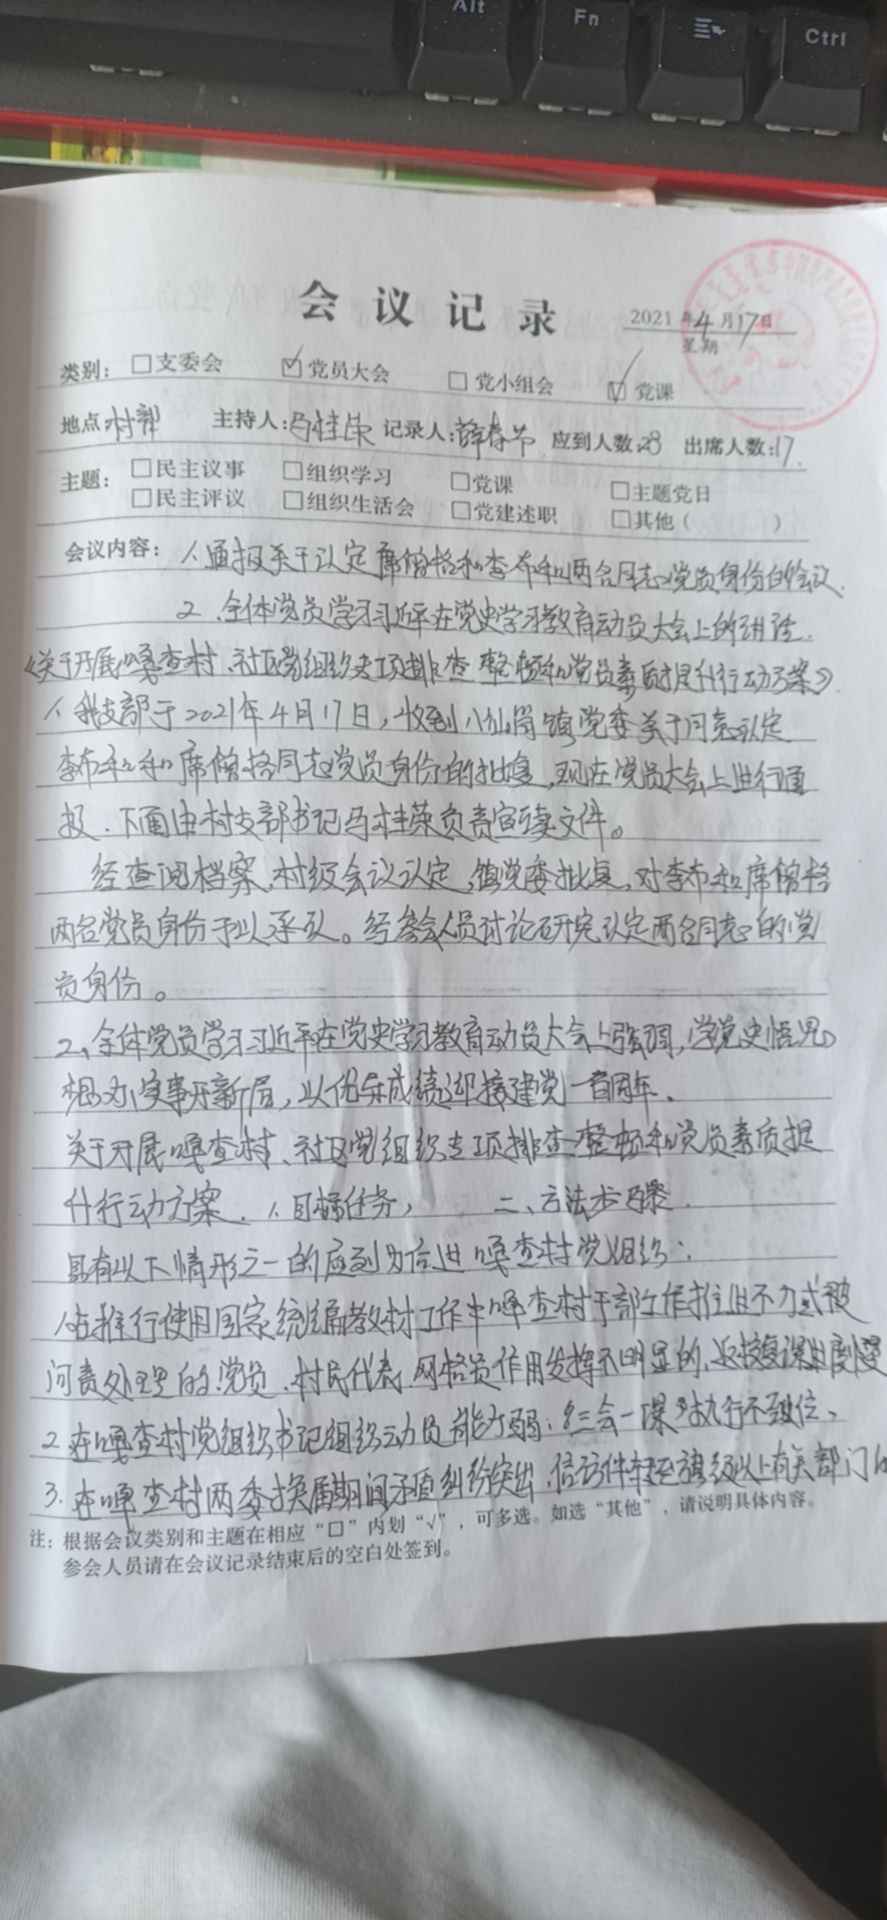 Alt
Fn
Ctrl
会议记录
2021年4月17日
星期
类别：□支委会 ☑党员大会 □党小组会 ☑党课
地点：村部 主持人：马桂荣 记录人：薛春节 应到人数：28 出席人数：17.
主题：□民主议事 □组织学习 □党课 □主题党日
□民主评议 □组织生活会 □党建述职 □其他（ ）
会议内容：1、通报关于认定席僧格和李布和两名同志党员身份的会议.
2、全体党员学习习近平在党史学习教育动员大会上的讲话.
《关于开展嘎查村、社区党组织专项排查整顿和党员素质提升行动方案》
1、我支部于2021年4月17日，收到八仙筒镇党委关于同意认定
李布和和席僧格同志党员身份的批复，现在党员大会上进行通
报.下面由村支部书记马桂荣负责宣读文件。
经查阅档案，村级会议认定，镇党委批复，对李布和席僧格
两名党员身份予以承认。经参会人员讨论研究认定两名同志的党
员身份。
2、全体党员学习习近平在党史学习教育动员大会上强调，学党史悟思
想办实事开新局，以优异成绩迎接建党一百周年.
关于开展嘎查村、社区党组织专项排查整顿和党员素质提
升行动方案.1、目标任务， 二、方法步骤.
具有以下情形之一的应列为后进嘎查村党组织：
1、在推行使用国家统编教材工作中嘎查村干部工作推进不力或被
问责处理的.党员、村民代表、网格员作用发挥不明显的、返校复课
2、在嘎查村党组织书记组织动员能力弱；"三会一课"执行不到位、
3、在嘎查村两委换届期间矛盾纠纷突出、信访件转至旗级以上有关部门的
注：根据会议类别和主题在相应"□"内划"√"，可多选。如选"其他"，请说明具体内容。
参会人员请在会议记录结束后的空白处签到。